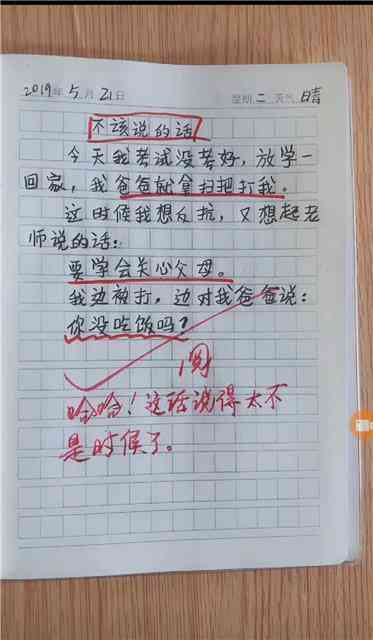 2019年 5月 21日 星期 二 天气 晴
不该说的话
今天我考试没考好，放学一
回家，我爸爸就拿扫把打我。
这时候我想反抗，又想起老
师说的话：
要学会关心父母。
我边被打，边对我爸爸说：
你没吃饭吗？
阅
哈哈！这话说得太不
是时候了。